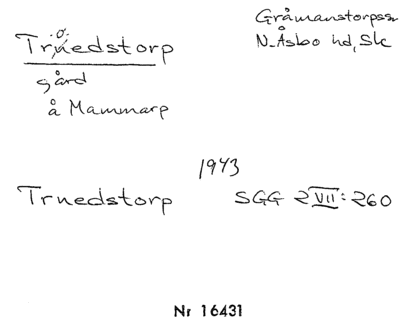 Trnedstorp
Gråmanstorpssn
N. Åsbo hd, Sk
gård
å Mammarp
1943
Trnedstorp SGG 2 VII: 260
Nr 16431